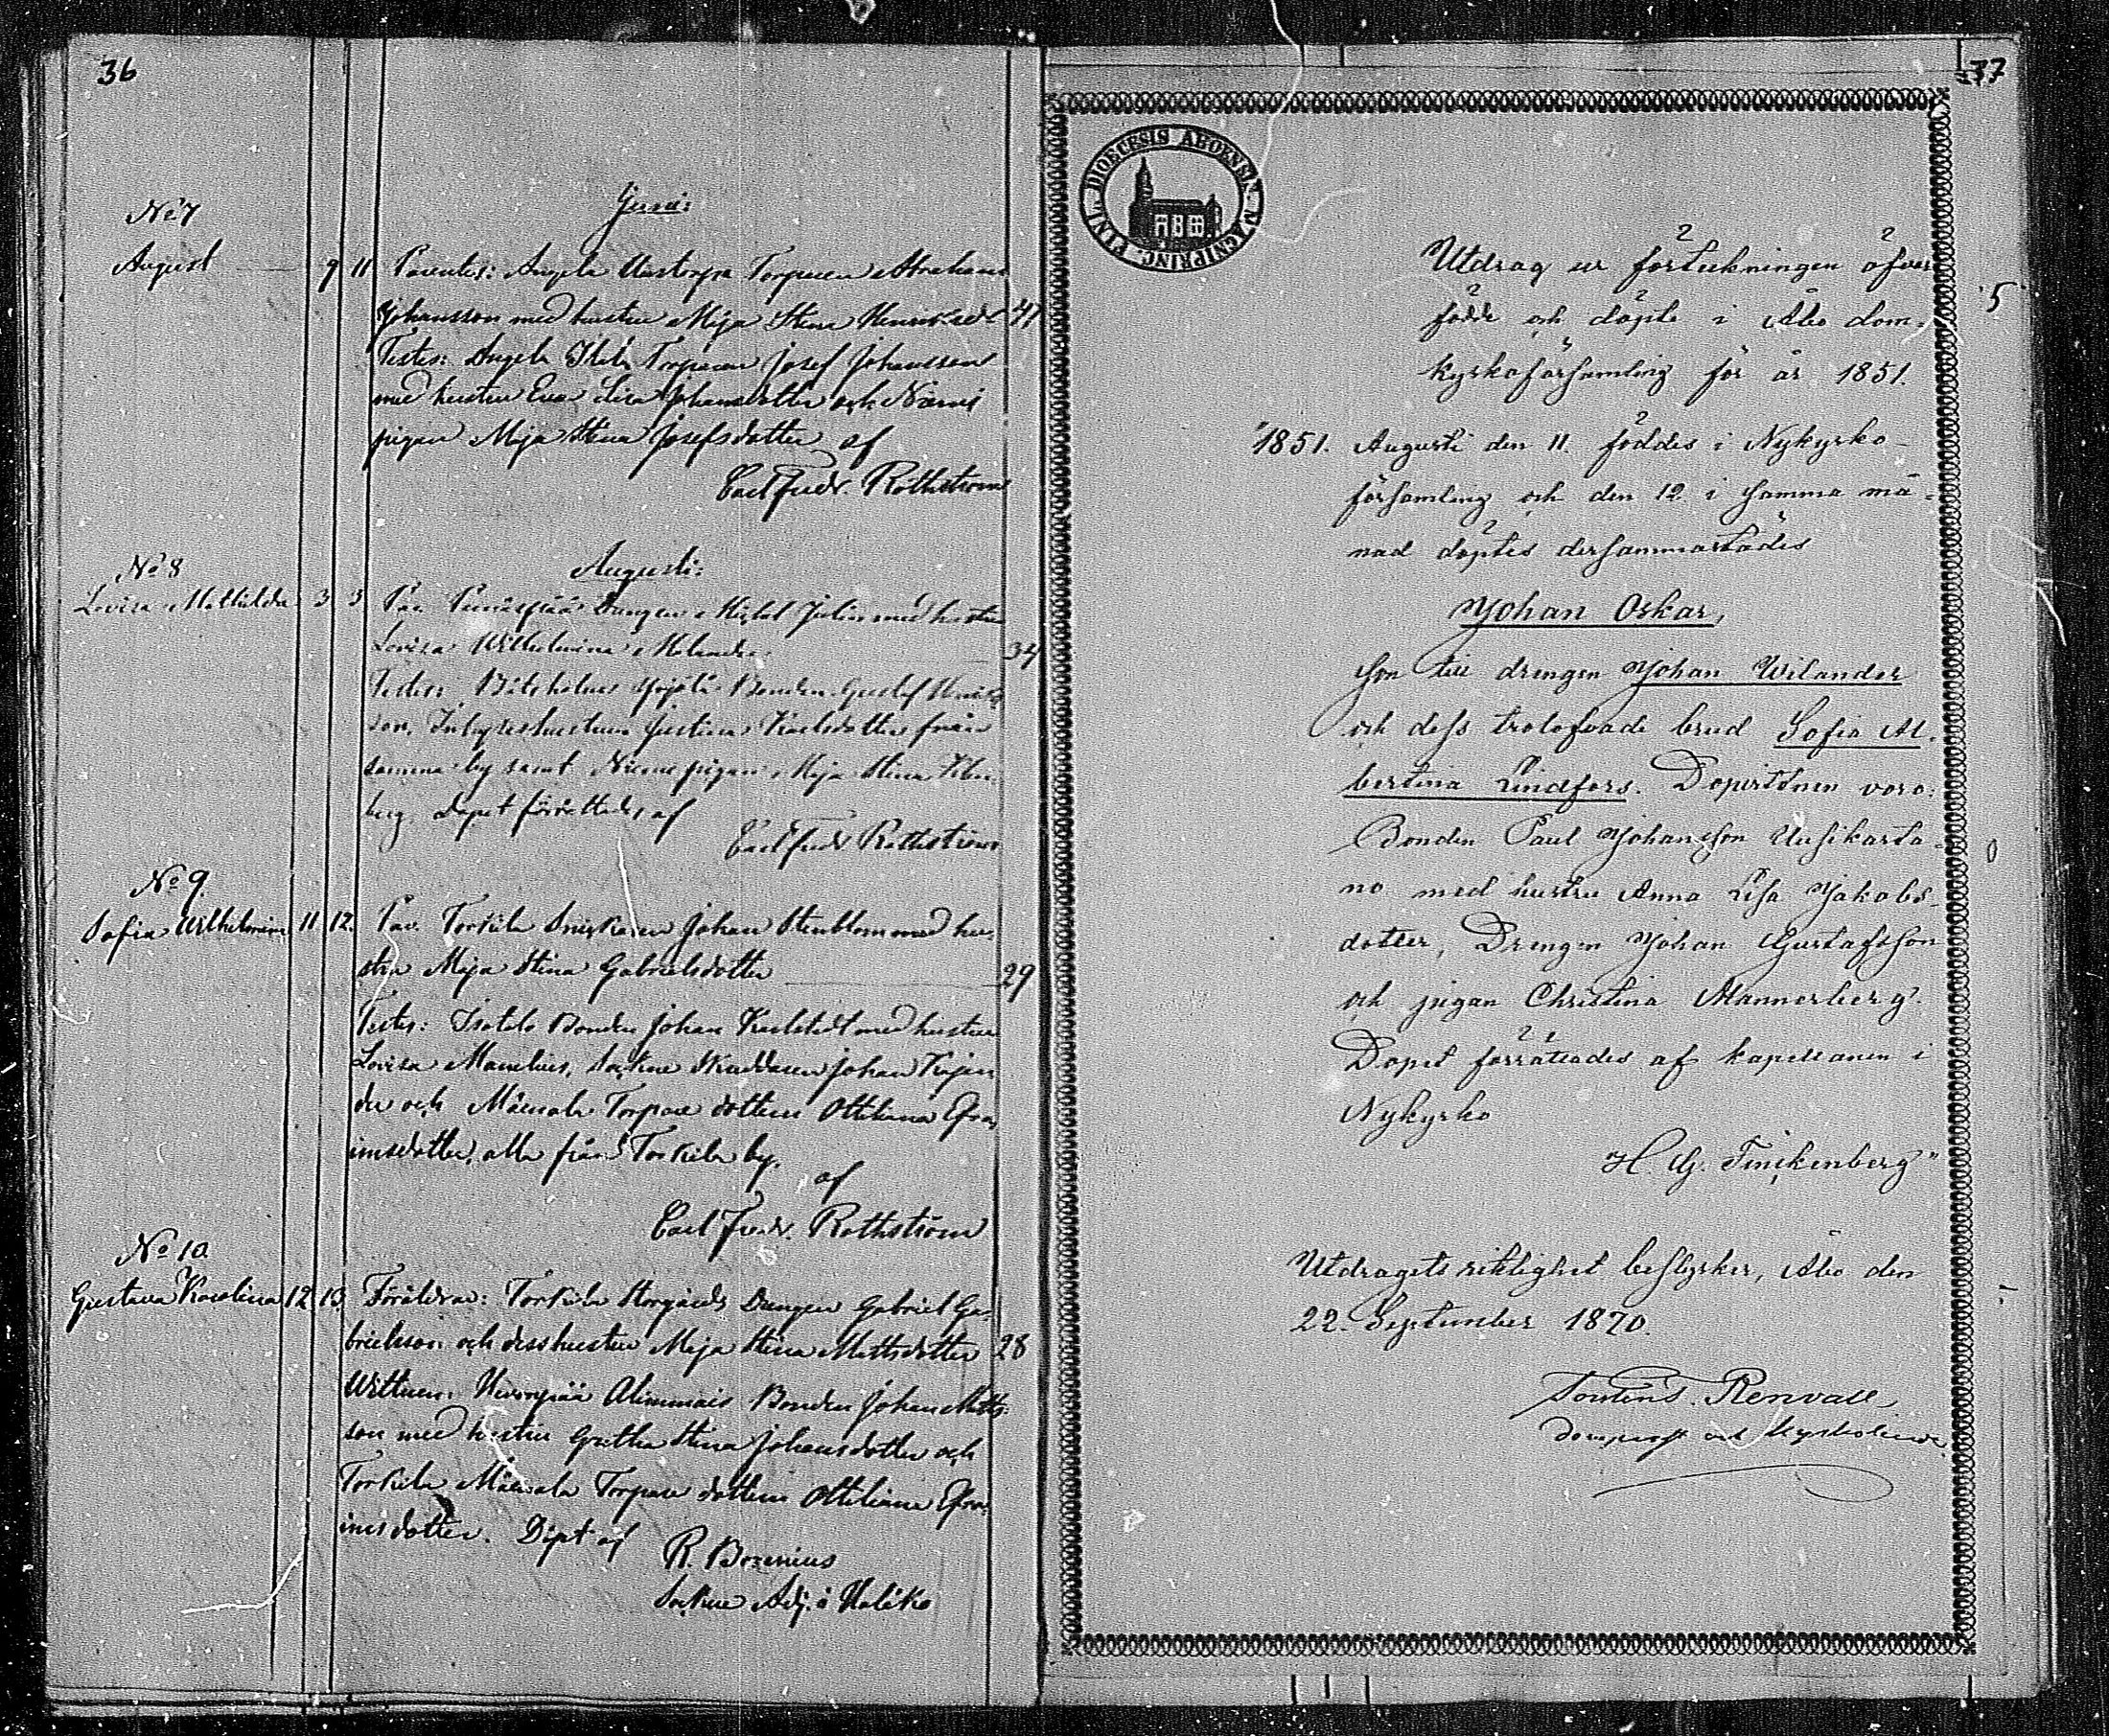 36
Juni:
No 7
August 9 11 Parentes: Angela Torparen Abraham
Johansson med hustru Maja Stina Henriksdr 41
Testes: Angela Torparen Josef Johansson
med hustru Eva Lisa Johansdotter och
pigan Maja Stina Josefsdotter af
Carl Fredr. Rothström
Augusti:
No 8
Lovisa Mathilda 3 5 Par. Drängen Michel Julin med hustru
Lovisa Wilhelmina 34
Testes: Bonden Gustaf
son, Inhyseshustrun Justina Karlsdotter från
samma by samt pigan Maja Stina
berg. Dopet förrättades af
Carl Fredr Rothström
No 9.
Sofia Wilhelmina 11 12. Par. Torkila Snickaren Johan Stenblom med hu-
stru Maja Stina Gabrielsdotter 29
Testes: Isotalo Bonden Johan Karlstedt med hustru
Lovisa Sockne Skräddaren Johan Kajan
der och Mäenala Torpare dottern Ottiliana Efra
imsdotter, alla från Torkila by.
af
Carl Fredr. Rothström
No 10
Gustava Karolina 12 13 Föräldrar: Torkila Storgårds Drängen Gabriel Ga-
brielsson och dess hustru Maja Stina Mattsdotter 28
Wittnen: Alimmais Bonden Johan Matts-
son med hustru Gretha Stina Johansdotter och
Torkila Mäenala Torpare dottern Ottiliana Efra-
imsdotter. Döpt af
R. Bozenius
Sockne Adj. i Haliko
77
DIOECESIS ABOENSIS MAGNI PRINC. FINL.
Utdrag ur förteckningen öfver
födde och döpte i Åbo dom-
kyrkoförsamling för år 1851.
5
"1851. Augusti den 11. föddes i Nykyrko
församling och den 12. i samma må-
nad döptes dersammastädes
Johan Oskar,
son till drengen Johan Wilander
och dess trolofvade brud Sofia Al-
bertina Lindfors. Dopvittnen voro:
Bonden Paul Johansson Uusikarta-
no med hustru Anna Lisa Jakobs-
dotter, Drengen Johan Gustafsson
och pigan Christina Mannerberg.
Dopet förrättades af kapellanen i
Nykyrko
H. G. Finckenberg"
Utdragets riktighet bestyrker, Åbo den
22. September 1870.
Torsten T. Renvall
Domprost och Kyrkoherde